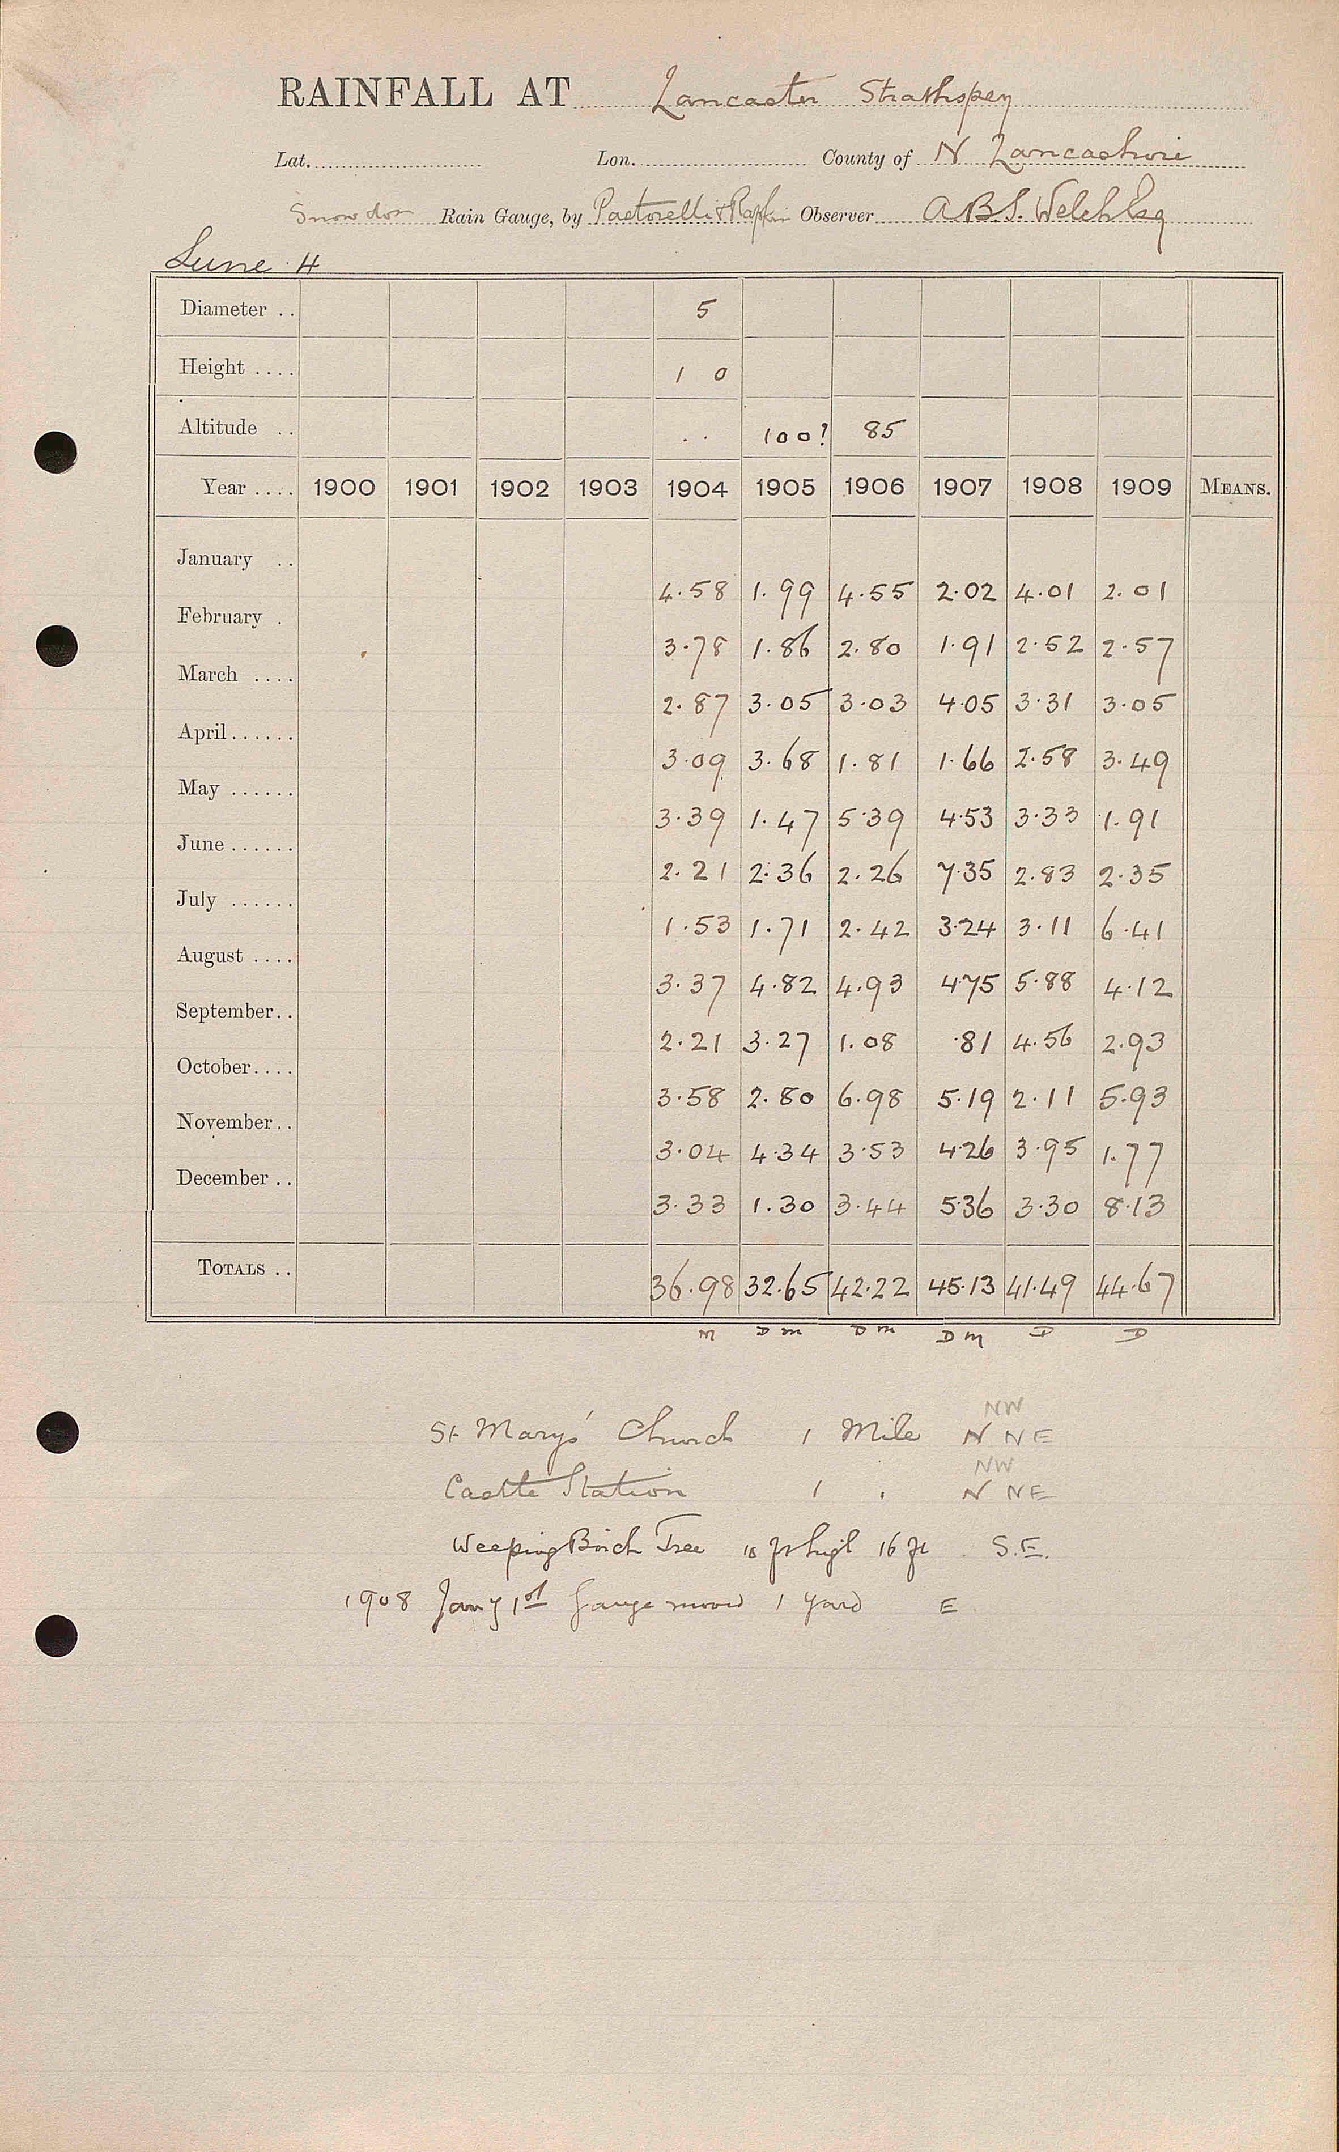 RAINFALL AT Lancaster Strathspey
Lat. Lon. County of N Lancashire
Snowdon Rain Gauge, by Pastorelli & Rapkin Observer A.B.S. Welch Esq
Lune 4
Diameter .. 5
Height .... 1 0
Altitude .. .. 100? 85
Year .... 1900 1901 1902 1903 1904 1905 1906 1907 1908 1909 MEANS.
January .. 4.58 1.99 4.55 2.02 4.01 2.01
February . 3.78 1.86 2.80 1.91 2.52 2.57
March .... 2.87 3.05 3.03 4.05 3.31 3.05
April...... 3.09 3.68 1.81 1.66 2.58 3.49
May ...... 3.39 1.47 5.39 4.53 3.33 1.91
June ...... 2.21 2.36 2.26 7.35 2.83 2.35
July ...... 1.53 1.71 2.42 3.24 3.11 6.41
August .... 3.37 4.82 4.93 4.75 5.88 4.12
September.. 2.21 3.27 1.08 .81 4.56 2.93
October.... 3.58 2.80 6.98 5.19 2.11 5.93
November.. 3.04 4.34 3.53 4.26 3.95 1.77
December .. 3.33 1.30 3.44 5.36 3.30 8.13
TOTALS .. 36.98 32.65 42.22 45.13 41.49 44.67
M D m D m D m D D
NW
St Mary's Church 1 Mile N NE
NW
Castle Station 1 " N NE
Weeping Birch Tree ft high 16 ft S.E.
1908 Jany 1st Gauge moved 1 yard E